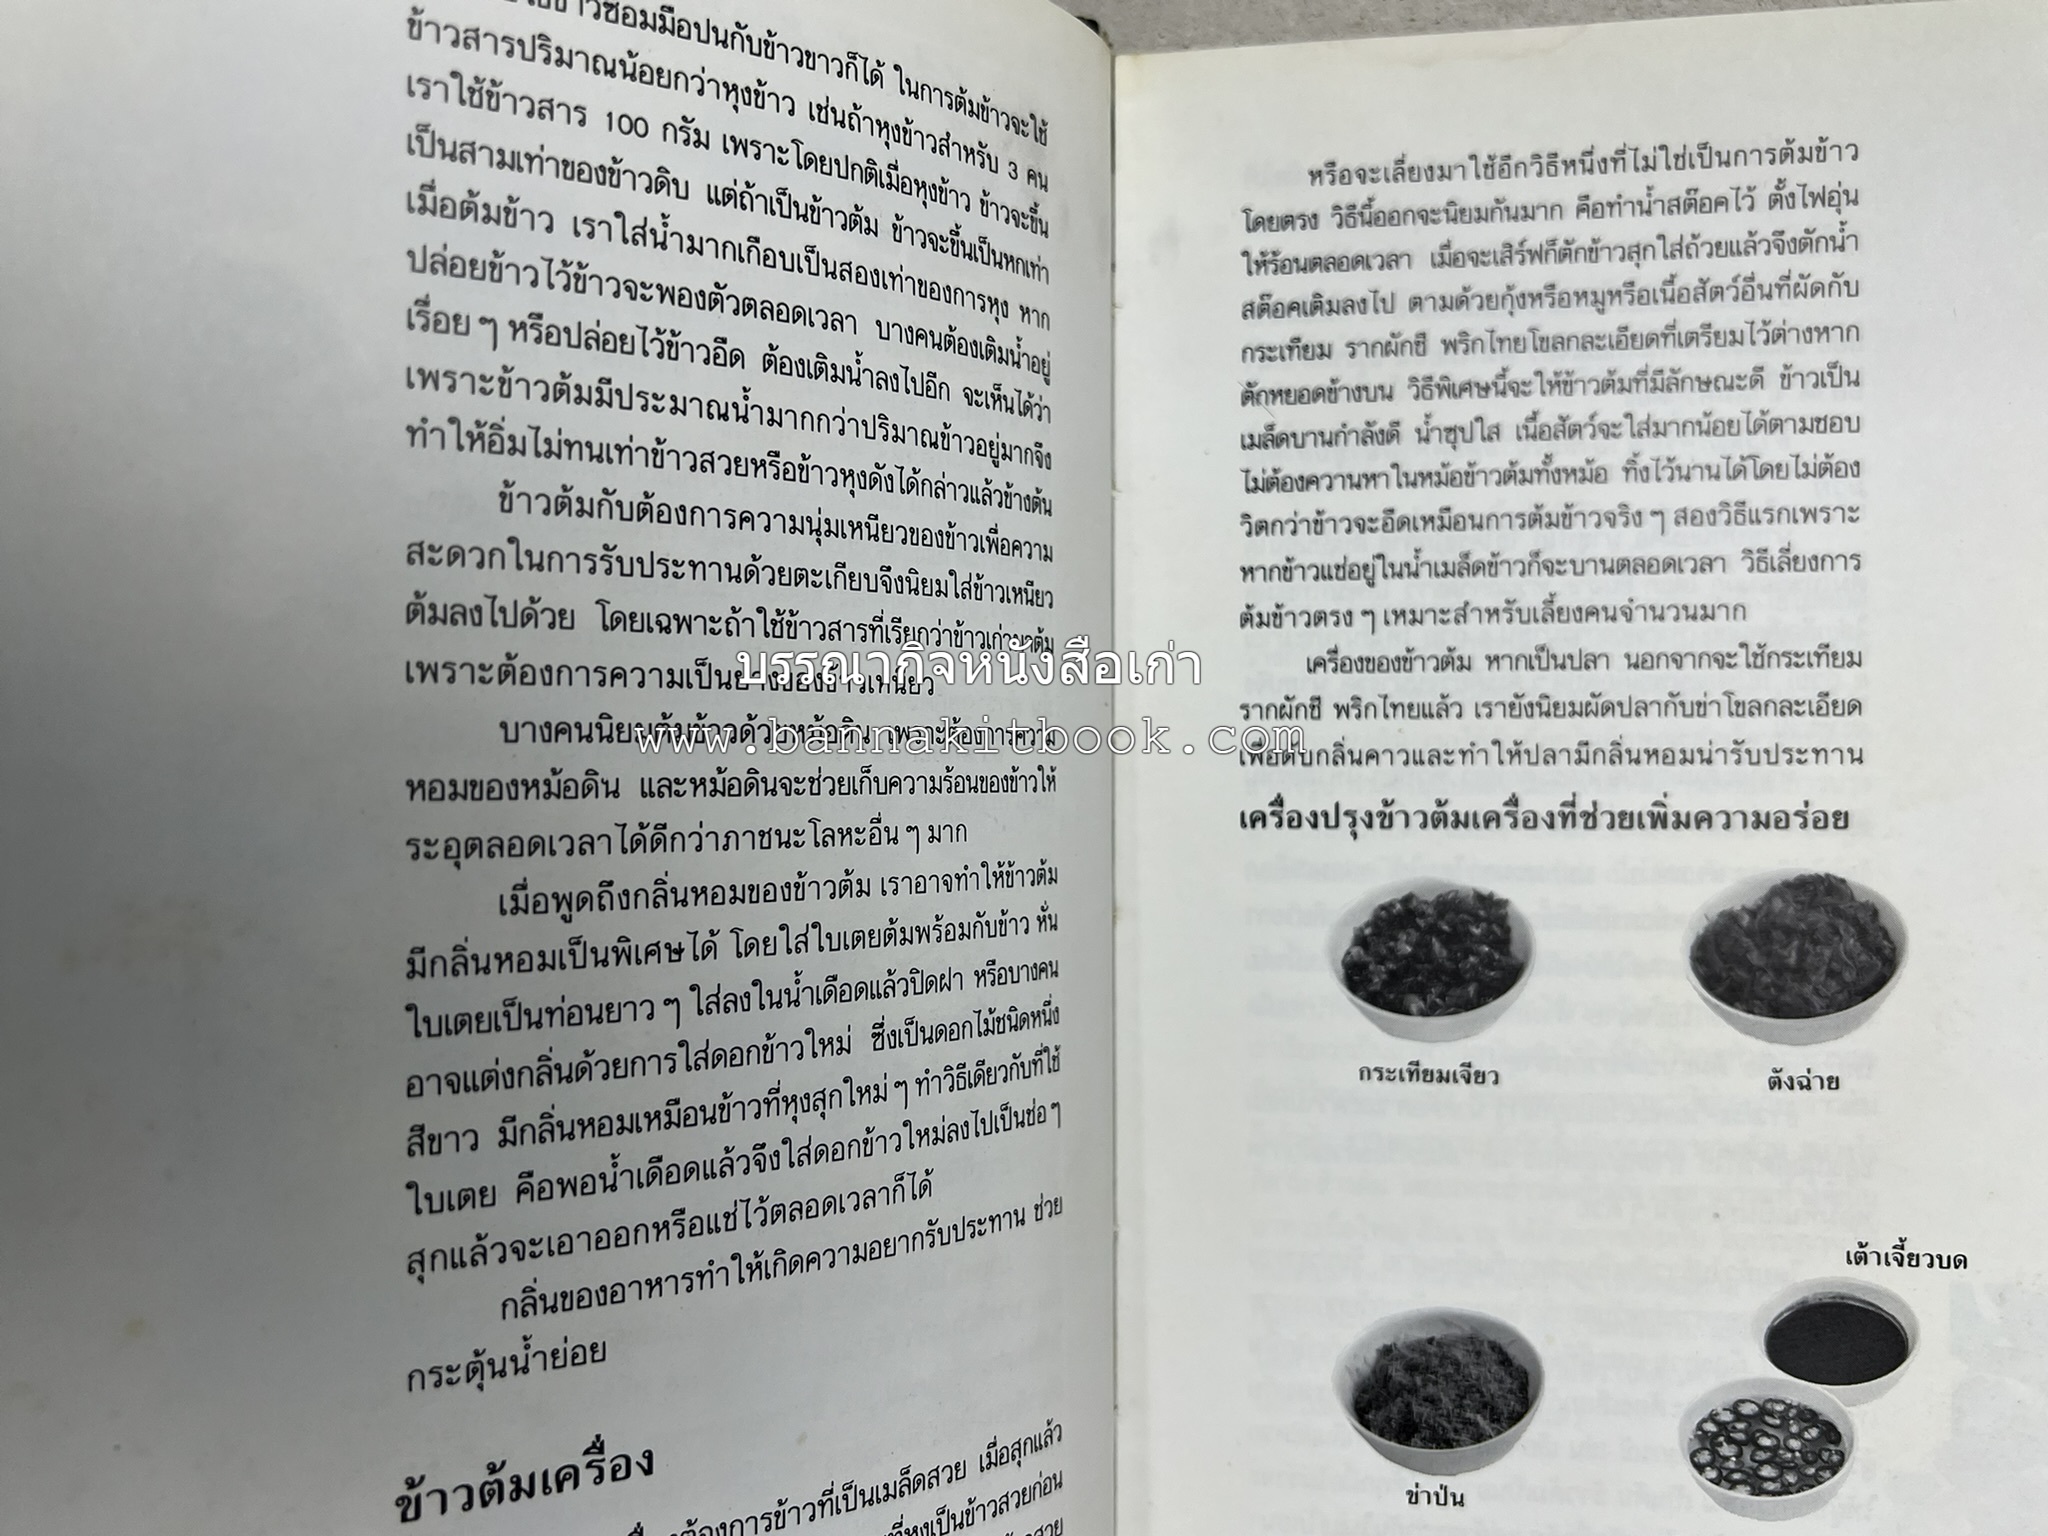 ข้าวซ้อมมือปนกับข้าวขาวก็ได้ ในการต้มข้าวจะใช้
ข้าวสารปริมาณน้อยกว่าหุงข้าว เช่นถ้าหุงข้าวสำหรับ 3 คน
เราใช้ข้าวสาร 100 กรัม เพราะโดยปกติเมื่อหุงข้าว ข้าวจะขึ้น
เป็นสามเท่าของข้าวดิบ แต่ถ้าเป็นข้าวต้ม ข้าวจะขึ้นเป็นหกเท่า
เมื่อต้มข้าว เราใส่น้ำมากเกือบเป็นสองเท่าของการหุง หาก
ปล่อยข้าวไว้ข้าวจะพองตัวตลอดเวลา บางคนต้องเติมน้ำอยู่
เรื่อย ๆ หรือปล่อยไว้ข้าวอืด ต้องเติมน้ำลงไปอีก จะเห็นได้ว่า
เพราะข้าวต้มมีประมาณน้ำมากกว่าปริมาณข้าวอยู่มากจึง
ทำให้อิ่มไม่ทนเท่าข้าวสวยหรือข้าวหุงดังได้กล่าวแล้วข้างต้น
ข้าวต้มกับต้องการความนุ่มเหนียวของข้าวเพื่อความ
สะดวกในการรับประทานด้วยตะเกียบจึงนิยมใส่ข้าวเหนียว
ต้มลงไปด้วย โดยเฉพาะถ้าใช้ข้าวสารที่เรียกว่าข้าวเก่ามาต้ม
เพราะต้องการความเป็นยางของข้าวเหนียว
บางคนนิยมต้มข้าวด้วยหม้อดิน เพราะต้องการความ
หอมของหม้อดิน และหม้อดินจะช่วยเก็บความร้อนของข้าวให้
ระอุตลอดเวลาได้ดีกว่าภาชนะโลหะอื่น ๆ มาก
เมื่อพูดถึงกลิ่นหอมของข้าวต้ม เราอาจทำให้ข้าวต้ม
มีกลิ่นหอมเป็นพิเศษได้ โดยใส่ใบเตยต้มพร้อมกับข้าว หั่น
ใบเตยเป็นท่อนยาว ๆ ใส่ลงในน้ำเดือดแล้วปิดฝา หรือบางคน
อาจแต่งกลิ่นด้วยการใส่ดอกข้าวใหม่ ซึ่งเป็นดอกไม้ชนิดหนึ่ง
สีขาว มีกลิ่นหอมเหมือนข้าวที่หุงสุกใหม่ ๆ ทำวิธีเดียวกับที่ใช้
ใบเตย คือพอน้ำเดือดแล้วจึงใส่ดอกข้าวใหม่ลงไปเป็นช่อ ๆ
สุกแล้วจะเอาออกหรือแช่ไว้ตลอดเวลาก็ได้
กลิ่นของอาหารทำให้เกิดความอยากรับประทาน ช่วย
กระตุ้นน้ำย่อย
ข้าวต้มเครื่อง
ต้องการข้าวที่เป็นเมล็ดสวย เมื่อสุกแล้ว
ที่หุงเป็นข้าวสวยก่อน
หรือจะเลี่ยงมาใช้อีกวิธีหนึ่งที่ไม่ใช่เป็นการต้มข้าว
โดยตรง วิธีนี้ออกจะนิยมกันมาก คือทำน้ำสต๊อคไว้ ตั้งไฟอุ่น
ให้ร้อนตลอดเวลา เมื่อจะเสิร์ฟก็ตักข้าวสุกใส่ถ้วยแล้วจึงตักน้ำ
สต๊อคเติมลงไป ตามด้วยกุ้งหรือหมูหรือเนื้อสัตว์อื่นที่ผัดกับ
กระเทียม รากผักชี พริกไทยโขลกละเอียดที่เตรียมไว้ต่างหาก
ตักหยอดข้างบน วิธีพิเศษนี้จะให้ข้าวต้มที่มีลักษณะดี ข้าวเป็น
เมล็ดบานกำลังดี น้ำซุปใส เนื้อสัตว์จะใส่มากน้อยได้ตามชอบ
ไม่ต้องควานหาในหม้อข้าวต้มทั้งหม้อ ทิ้งไว้นานได้โดยไม่ต้อง
วิตกว่าข้าวจะอืดเหมือนการต้มข้าวจริง ๆ สองวิธีแรกเพราะ
หากข้าวแช่อยู่ในน้ำเมล็ดข้าวก็จะบานตลอดเวลา วิธีเลี่ยงการ
ต้มข้าวตรง ๆ เหมาะสำหรับเลี้ยงคนจำนวนมาก
เครื่องของข้าวต้ม หากเป็นปลา นอกจากจะใช้กระเทียม
รากผักชี พริกไทยแล้ว เรายังนิยมผัดปลากับข่าโขลกละเอียด
เพื่อดับกลิ่นคาวและทำให้ปลามีกลิ่นหอมน่ารับประทาน
เครื่องปรุงข้าวต้มเครื่องที่ช่วยเพิ่มความอร่อย
กระเทียมเจียว
ตังฉ่าย
เต้าเจี้ยวบด
ข่าป่น
บรรณากิจหนังสือเก่า
www.bannakitbook.com